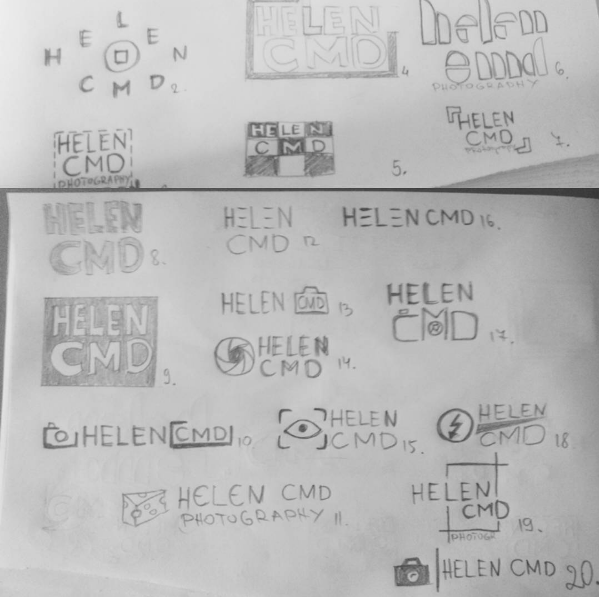 HELEN
CMD 2.
HELEN
CMD 4
helen
cmd 6.
PHOTOGRAPHY
HELEN
CMD
PHOTOGRAPHY
HELEN
CMD
5.
HELEN
CMD 7.
HELEN
CMD 8.
HELEN
CMD 12
HELEN CMD 16.
HELEN
CMD 9.
HELEN CMD 13
HELEN
CMD 14.
HELEN
CMD 17.
HELEN CMD 10
HELEN
CMD 15.
HELEN
CMD 18.
HELEN CMD
PHOTOGRAPHY 11.
HELEN
CMD 19.
HELEN CMD 20.